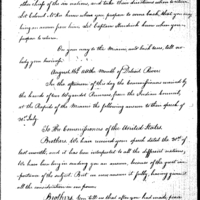 other chiefs of the six nations, and take their directions where to return.
let Colonel McKee know when you propose to come back, that you may
bring an answer from him. Let Captain Hendrick know when you
prepare to return.
On your way to the Miamis, make known, tell no-
body your business.
August 16th at the Mouth of Detroit River.
In the afternoon of this day the Commissioners received by
the hands of two Wyandot Runners from the Indian Council,
at the Rapids of the Miamis the following answer to their speech of
31st July.
To The Commissioners of the United States.
Brothers. We have received your speech dated the 31st of
last month, and it has been interpreted to all the different nations,
We have been long in sending you an answer, because of the great im-
portance of the subject. But we now answer it fully, having given it
all the consideration in our power.
Brothers. You tell us that after you had made peace